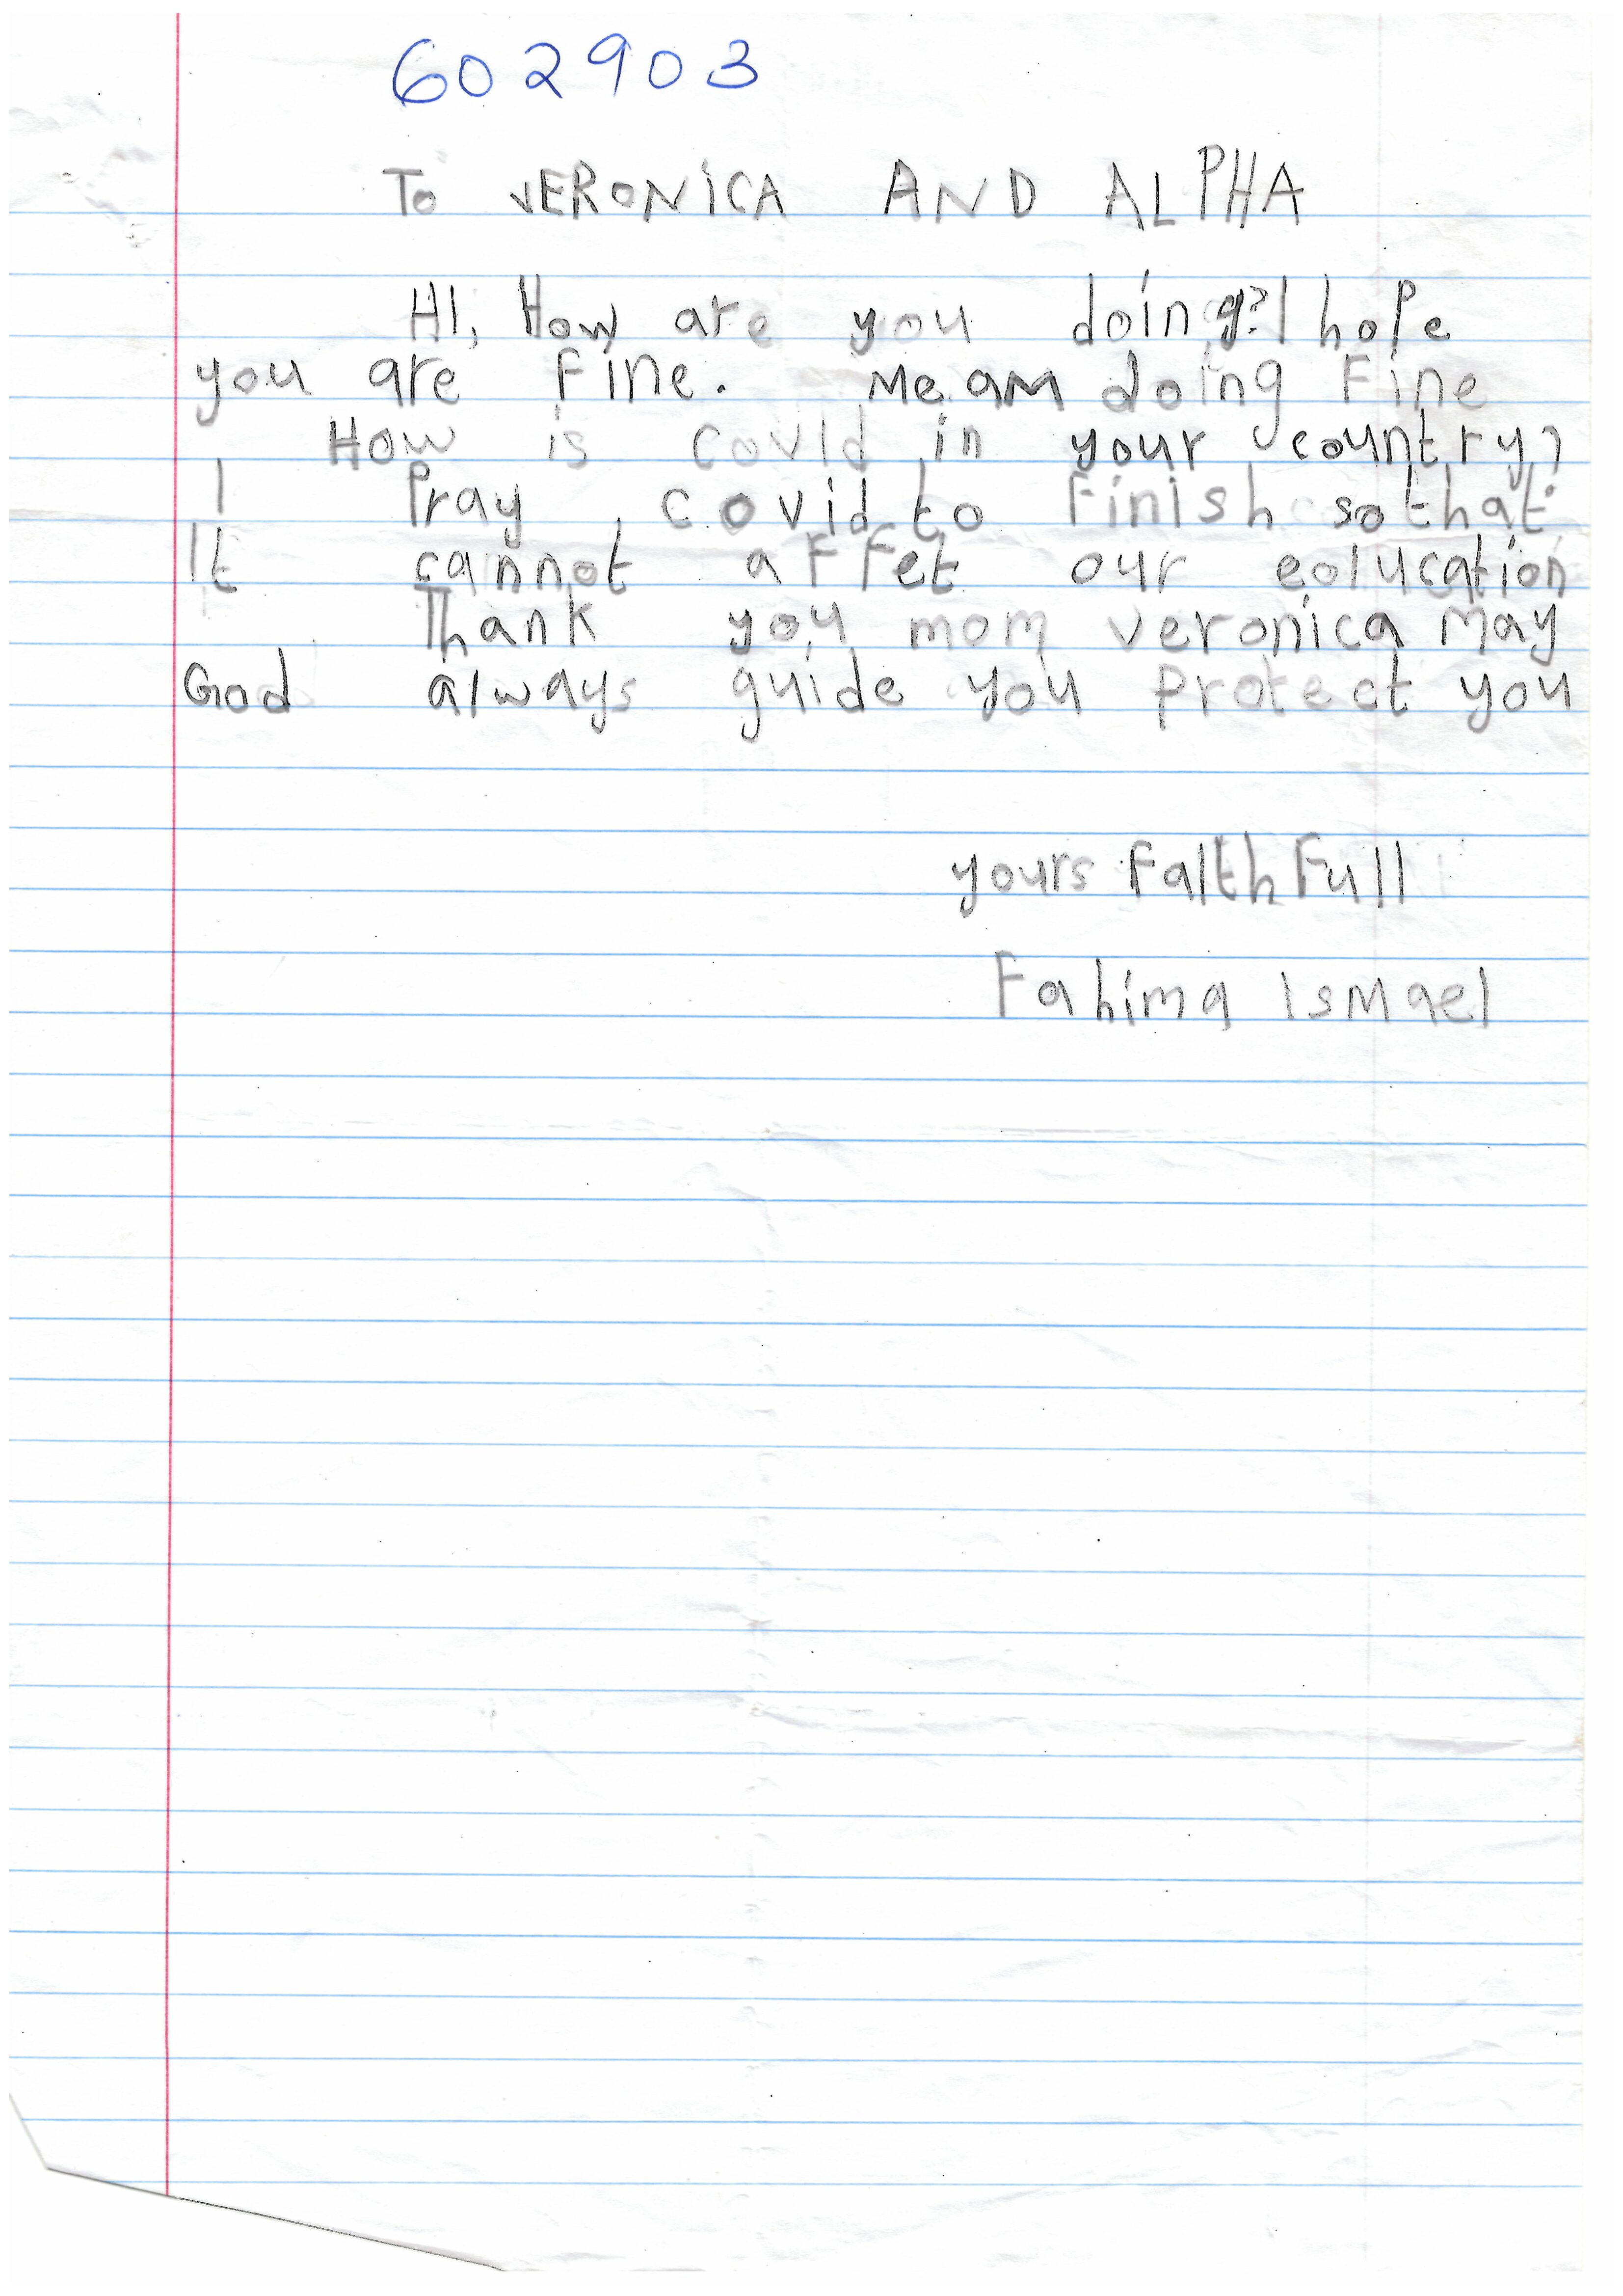 602903
To VERONICA AND ALPHA
HI, How are you doing? I hope
you are Fine. Me am doing Fine
How is covid in your country?
I Pray covid to Finish so that
It cannot aFFet our education
Thank you mom veronica May
God always guide you Protect you
yours FaithFull
Fahima Ismael